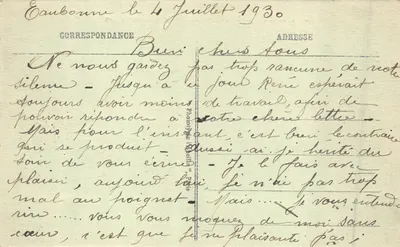 Eaubonne le 4 Juillet 1930
CORRESPONDANCE
ADRESSE
Bien chers tous
Ne nous gardez pas trop rancune de notre
silence - Jusqu'à ce jour René espérait
toujours avoir moins de travail, afin de
pouvoir répondre à votre chère lettre -
Mais pour l'instant, c'est bien le contraire
qui se produit - aussi ai-je hérité du
soin de vous écrire - Je le fais avec
plaisir, aujourd'hui, je n'ai pas trop
mal au poignet - Mais.... je vous entends
rire ..... vous vous moquez de moi sans
cœur, c'est que je ne plaisante pas;